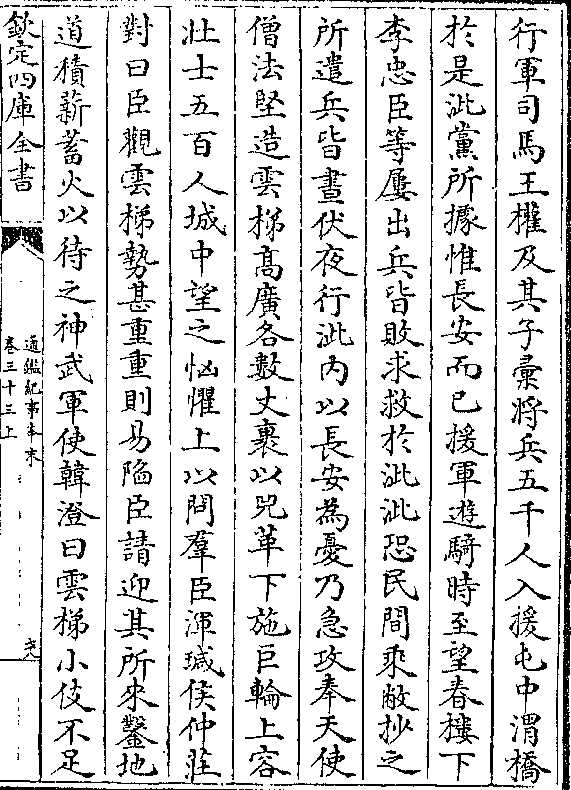 行軍司馬王權及其子彚將兵五千人入援屯中渭橋
於是泚黨所據惟長安而已援軍遊騎時至望春樓下
李忠臣等屢出兵皆敗求救於泚泚恐民間乘敝抄之
所遣兵皆晝伏夜行泚內以長安為憂乃急攻奉天使
僧法堅造雲梯高廣各數丈裹以兕革下施巨輪上容
壯士五百人城中望之恟懼上以問羣臣渾瑊侯仲莊
對曰臣觀雲梯勢甚重重則易陷臣請迎其所來鑿地
道積薪蓄火以待之神武軍使韓澄曰雲梯小伎不足
欽定四庫全書
通鑑紀事本末
卷三十三上